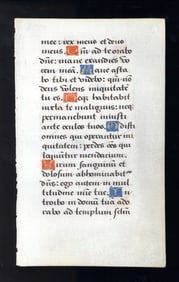 mee: rex meus et deus
meus. Qm̄ ad te orabo
dn̄e: mane exaudies vo
cem meā. Mane asta
bo tibi et videbo: qm̄ nō
deus volens iniquitatē
tu es. Neqꝫ habitabit
iuxta te malignus: neqꝫ
permanebunt iniusti
ante oculos tuos. Odisti
omnes qui operantur ini
quitatem: perdes oēs qui
loquūtur mendacium.
Virum sanguinū et
dolosum abhominabit᷑
dn̄s: ego autem in mul
titudine mīe tue. In
troibo in domū tuā ado
rabo ad templum sctm̄